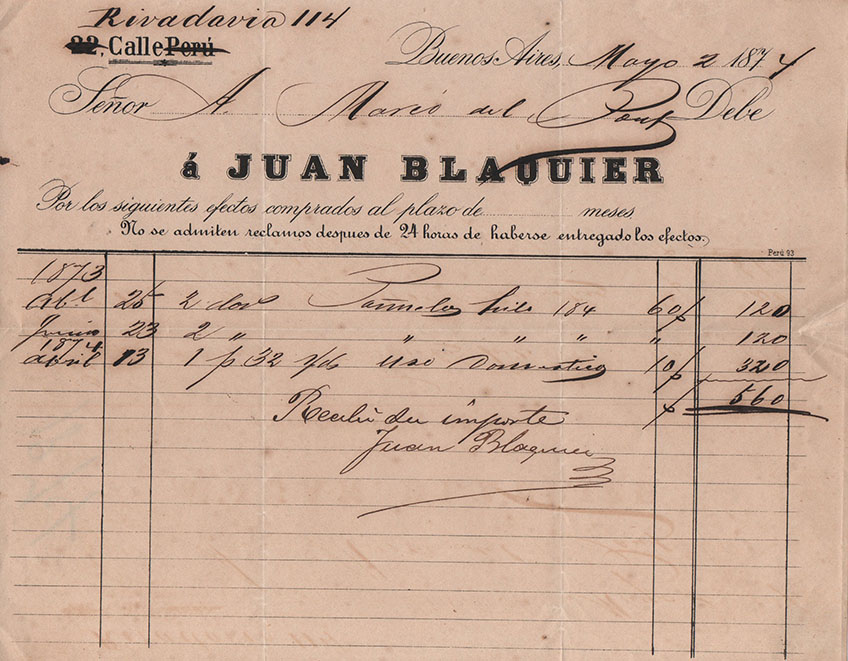 Rivadavia 114
22, Calle Perú
Buenos Aires, Mayo 2 1874
Señor A. Marcó del Pont Debe
á JUAN BLAQUIER
Por los siguientes efectos comprados al plazo de meses
No se admiten reclamos despues de 24 horas de haberse entregado los efectos.
Perú 93
1873
Ab.l 25 2 doc Pañuelos hilo 184 60 120
Junio 23 2 " " " " " 120
1874
Abril 13 1 p 32 Uso Domestico 10 320
560
Recibí su importe
Juan Blaquier